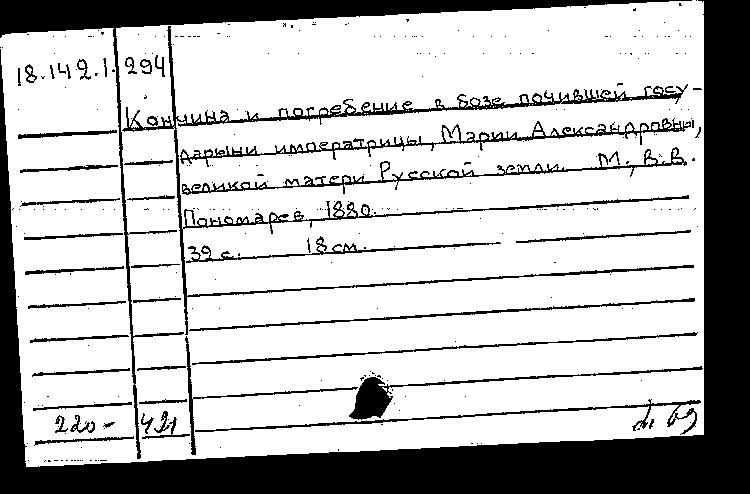 18.142.1.294
Кончина и погребение в бозе почившей госу-
дарыни императрицы, Марии Александровны,
великой матери Русской земли. М., В.В.
Пономарев, 1880.
39 с. 18 см.
220- 421